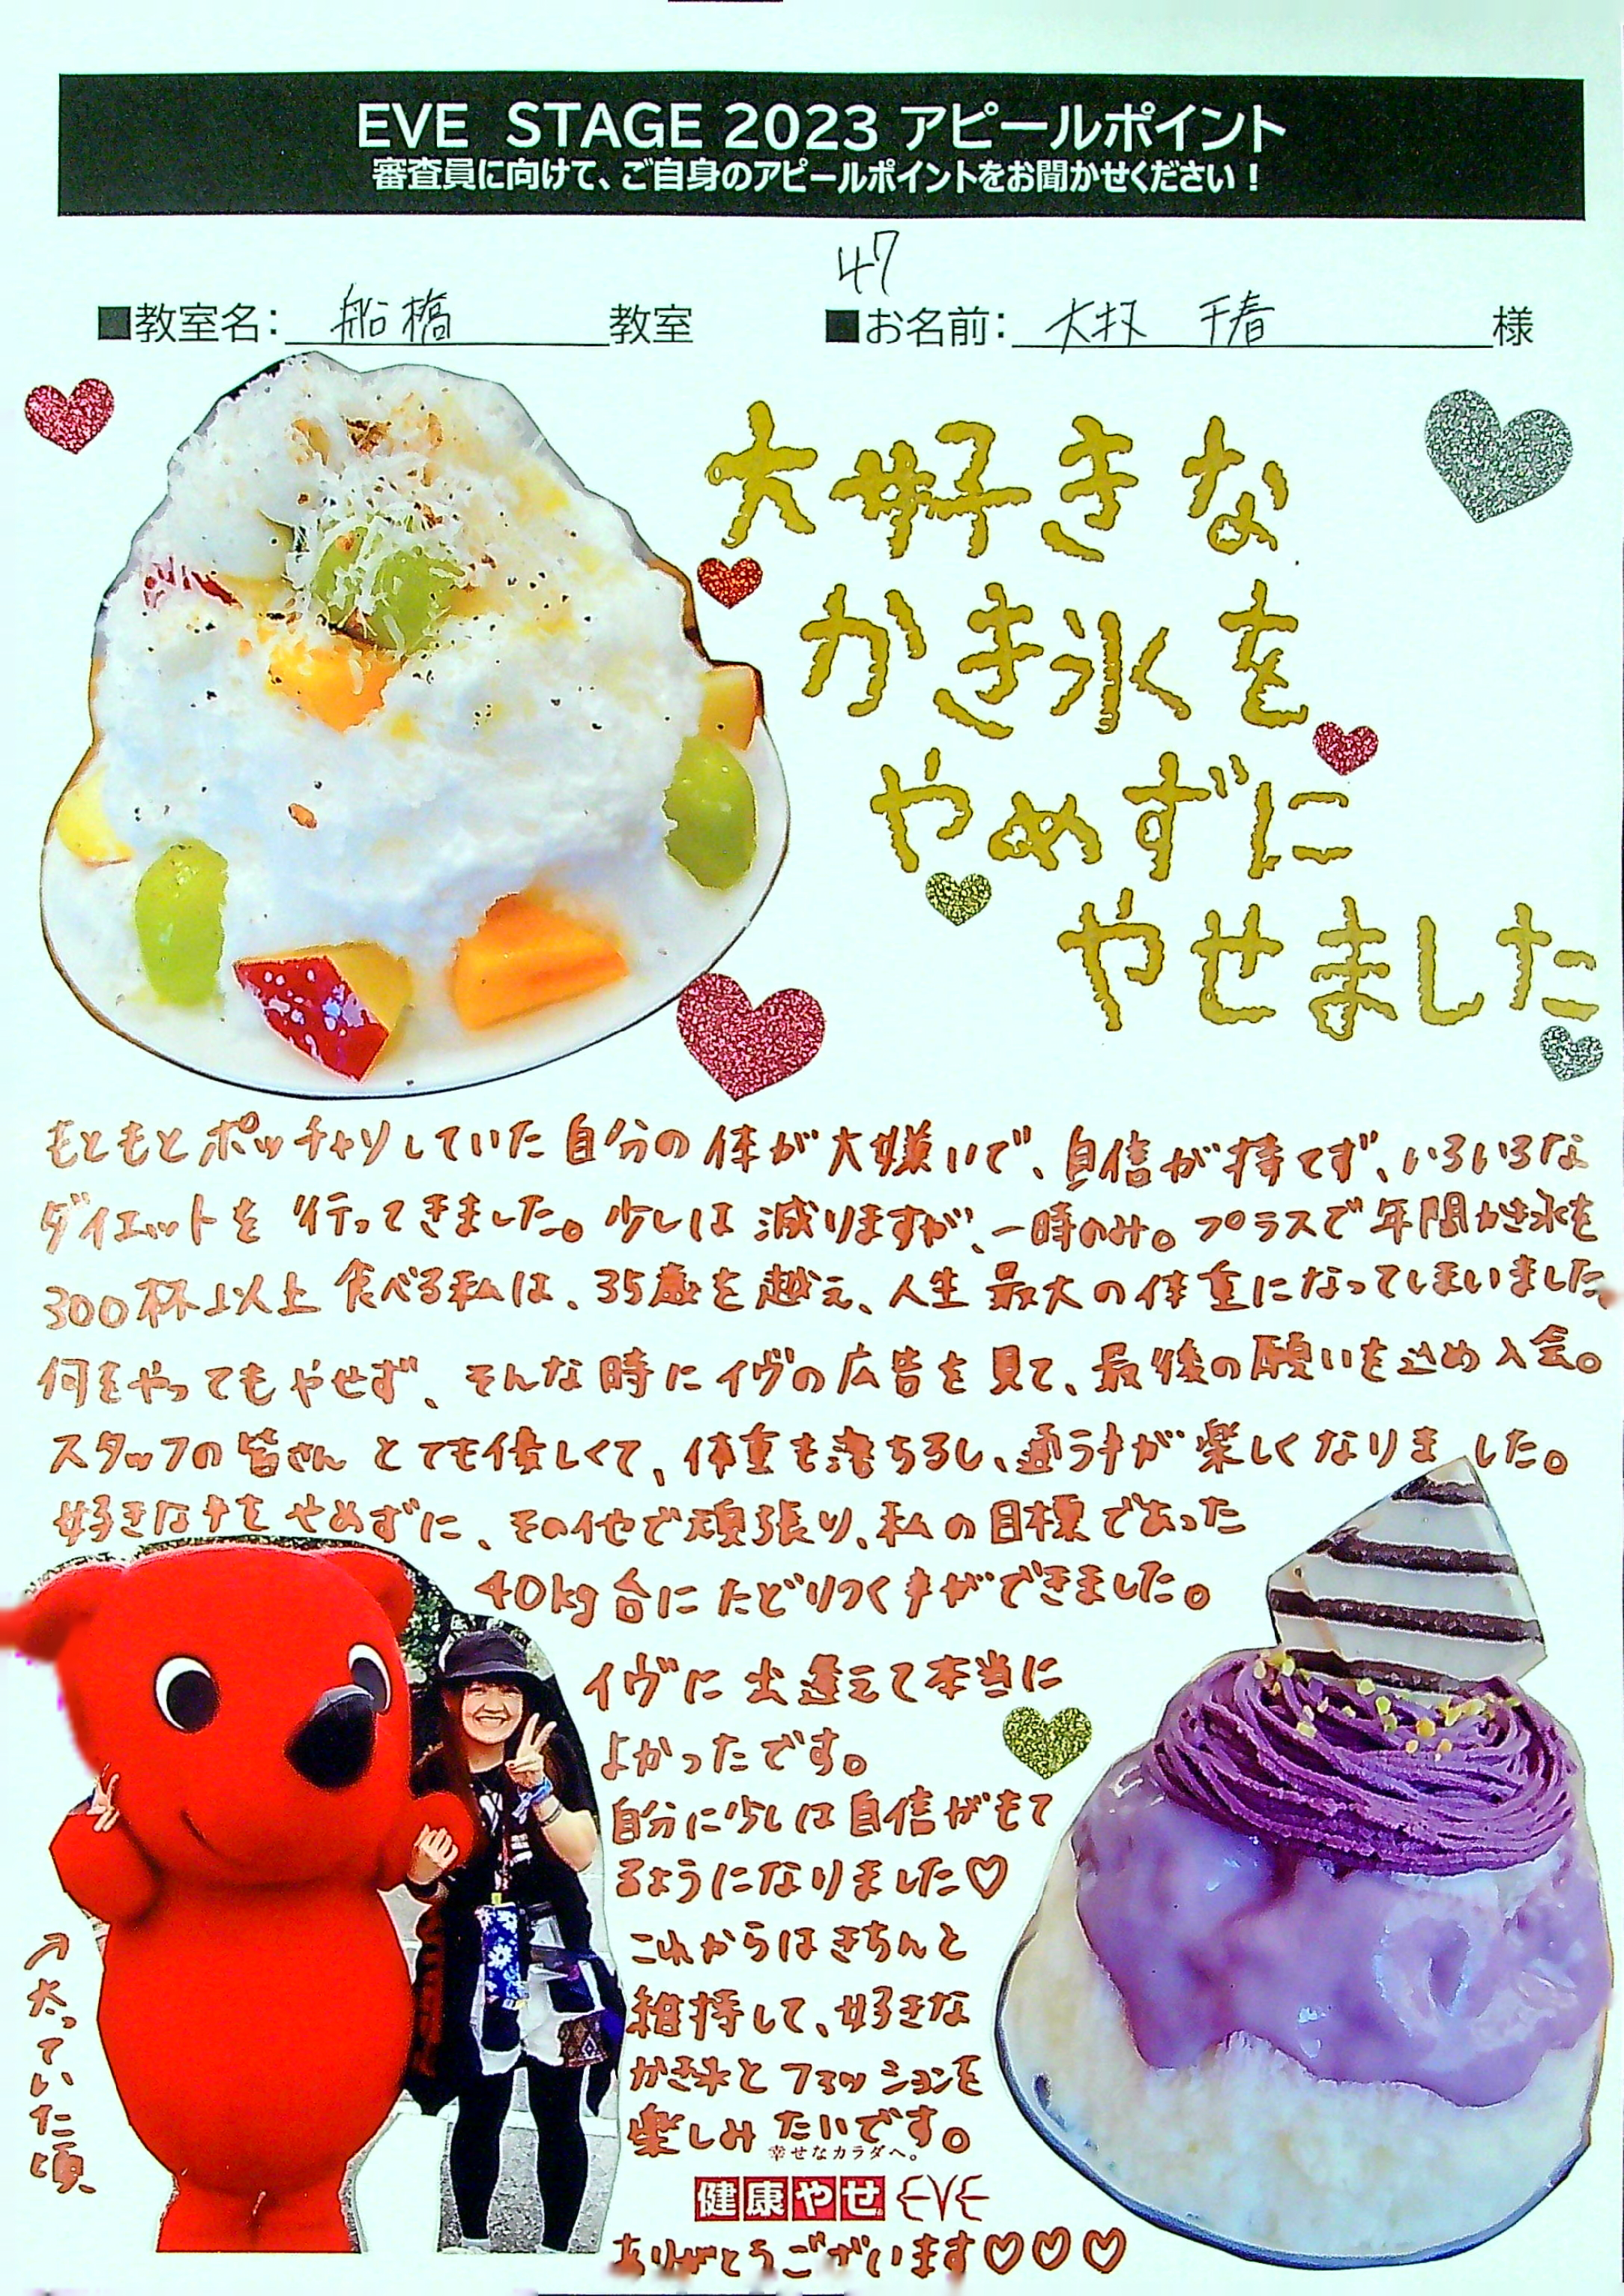 EVE STAGE 2023 アピールポイント
審査員に向けて、ご自身のアピールポイントをお聞かせください！
47
■教室名： 船橋 教室 ■お名前： 千春 様
大好きな
かき氷を
やめずに
やせました
もともとポッチャリしていた自分の体が大嫌いで、自信が持てず、いろいろな
ダイエットを行ってきました。少しは減りますが、一時のみ。プラスで年間かき氷を
300杯以上食べる私は、35歳を越え、人生最大の体重になってしまいました。
何をやってもやせず、そんな時にイヴの広告を見て、最後の願いを込め入会。
スタッフの皆さんとても優しくて、体重も落ちるし、通う事が楽しくなりました。
好きな事をやめずに、その他で頑張り、私の目標であった
40kg台にたどりつく事ができました。
イヴに出逢えて本当に
よかったです。
自分に少しは自信がもて
るようになりました♡
これからはきちんと
維持して、好きな
かき氷とファッションを
楽しみたいです。
↗太っていた頃
幸せなカラダへ。
健康やせ EVE
ありがとうございます♡♡♡